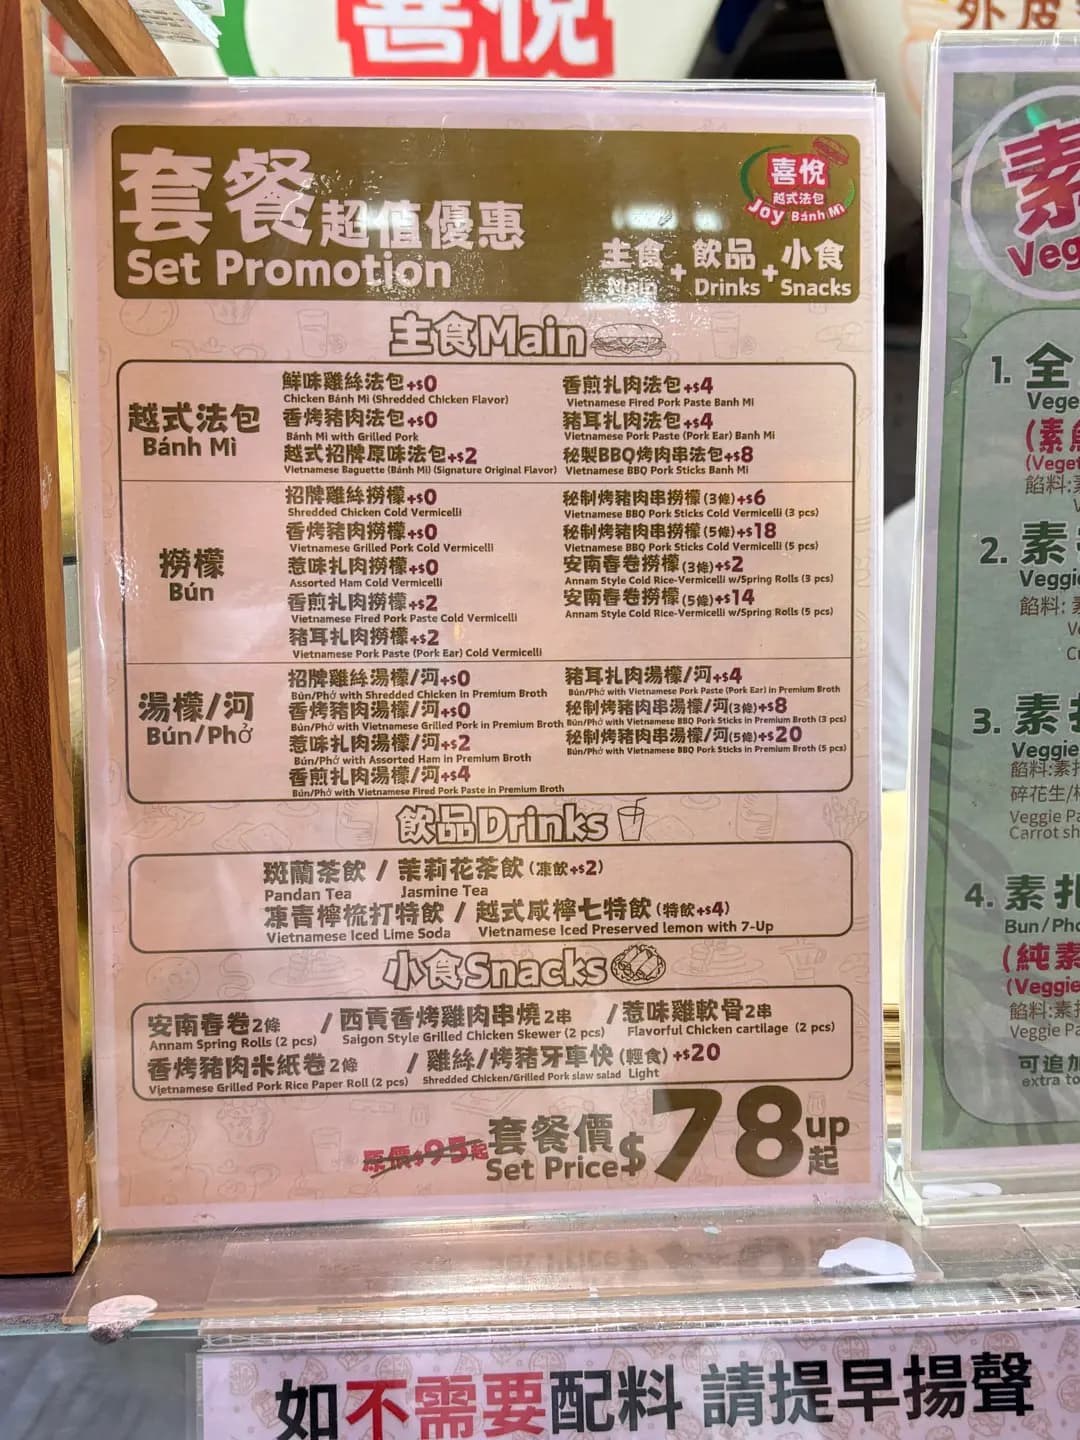 喜悅
外皮
套餐超值優惠
Set Promotion
喜悅
越式法包
Joy Bánh Mì
主食 + 飲品 + 小食
Main Drinks Snacks
主食Main
越式法包
Bánh Mì
鮮味雞絲法包+$0
Chicken Bánh Mì (Shredded Chicken Flavor)
香烤豬肉法包+$0
Bánh Mì with Grilled Pork
越式招牌原味法包+$2
Vietnamese Baguette (Bánh Mì) (Signature Original Flavor)
香煎扎肉法包+$4
Vietnamese Fired Pork Paste Banh Mi
豬耳扎肉法包+$4
Vietnamese Pork Paste (Pork Ear) Banh Mi
秘製BBQ烤肉串法包+$8
Vietnamese BBQ Pork Sticks Banh Mi
撈檬
Bún
招牌雞絲撈檬+$0
Shredded Chicken Cold Vermicelli
香烤豬肉撈檬+$0
Vietnamese Grilled Pork Cold Vermicelli
惹味扎肉撈檬+$0
Assorted Ham Cold Vermicelli
香煎扎肉撈檬+$2
Vietnamese Fired Pork Paste Cold Vermicelli
豬耳扎肉撈檬+$2
Vietnamese Pork Paste (Pork Ear) Cold Vermicelli
秘制烤豬肉串撈檬(3條)+$6
Vietnamese BBQ Pork Sticks Cold Vermicelli (3 pcs)
秘制烤豬肉串撈檬(5條)+$18
Vietnamese BBQ Pork Sticks Cold Vermicelli (5 pcs)
安南春卷撈檬(3條)+$2
Annam Style Cold Rice-Vermicelli w/Spring Rolls (3 pcs)
安南春卷撈檬(5條)+$14
Annam Style Cold Rice-Vermicelli w/Spring Rolls (5 pcs)
湯檬/河
Bún/Phở
招牌雞絲湯檬/河+$0
Bún/Phở with Shredded Chicken in Premium Broth
香烤豬肉湯檬/河+$0
Bún/Phở with Vietnamese Grilled Pork in Premium Broth
惹味扎肉湯檬/河+$2
Bún/Phở with Assorted Ham in Premium Broth
香煎扎肉湯檬/河+$4
Bún/Phở with Vietnamese Fired Pork Paste in Premium Broth
豬耳扎肉湯檬/河+$4
Bún/Phở with Vietnamese Pork Paste (Pork Ear) in Premium Broth
秘制烤豬肉串湯檬/河(3條)+$8
Bún/Phở with Vietnamese BBQ Pork Sticks in Premium Broth (3 pcs)
秘制烤豬肉串湯檬/河(5條)+$20
Bún/Phở with Vietnamese BBQ Pork Sticks in Premium Broth (5 pcs)
飲品Drinks
斑蘭茶飲 / 茉莉花茶飲(凍飲+$2)
Pandan Tea Jasmine Tea
凍青檸梳打特飲 / 越式咸檸七特飲(特飲+$4)
Vietnamese Iced Lime Soda Vietnamese Iced Preserved lemon with 7-Up
小食Snacks
安南春卷2條 / 西貢香烤雞肉串燒2串 / 惹味雞軟骨2串
Annam Spring Rolls (2 pcs) Saigon Style Grilled Chicken Skewer (2 pcs) Flavorful Chicken cartilage (2 pcs)
香烤豬肉米紙卷2條 / 雞絲/烤豬牙車快(輕食)+$20
Vietnamese Grilled Pork Rice Paper Roll (2 pcs) Shredded Chicken/Grilled Pork slaw salad Light
原價$95起 套餐價 $78up起
Set Price
素
Veg
1. 全
Vege
(素
(Veget
餡料:
2. 素
Veggie
餡料:
3. 素
Veggie
餡料:素
碎花生/
Veggie Pa
Carrot sh
4. 素扎
Bun/Pho
(純素
(Veggie
餡料:素扎
Veggie Pa
可追加
extra to
如不需要配料 請提早揚聲